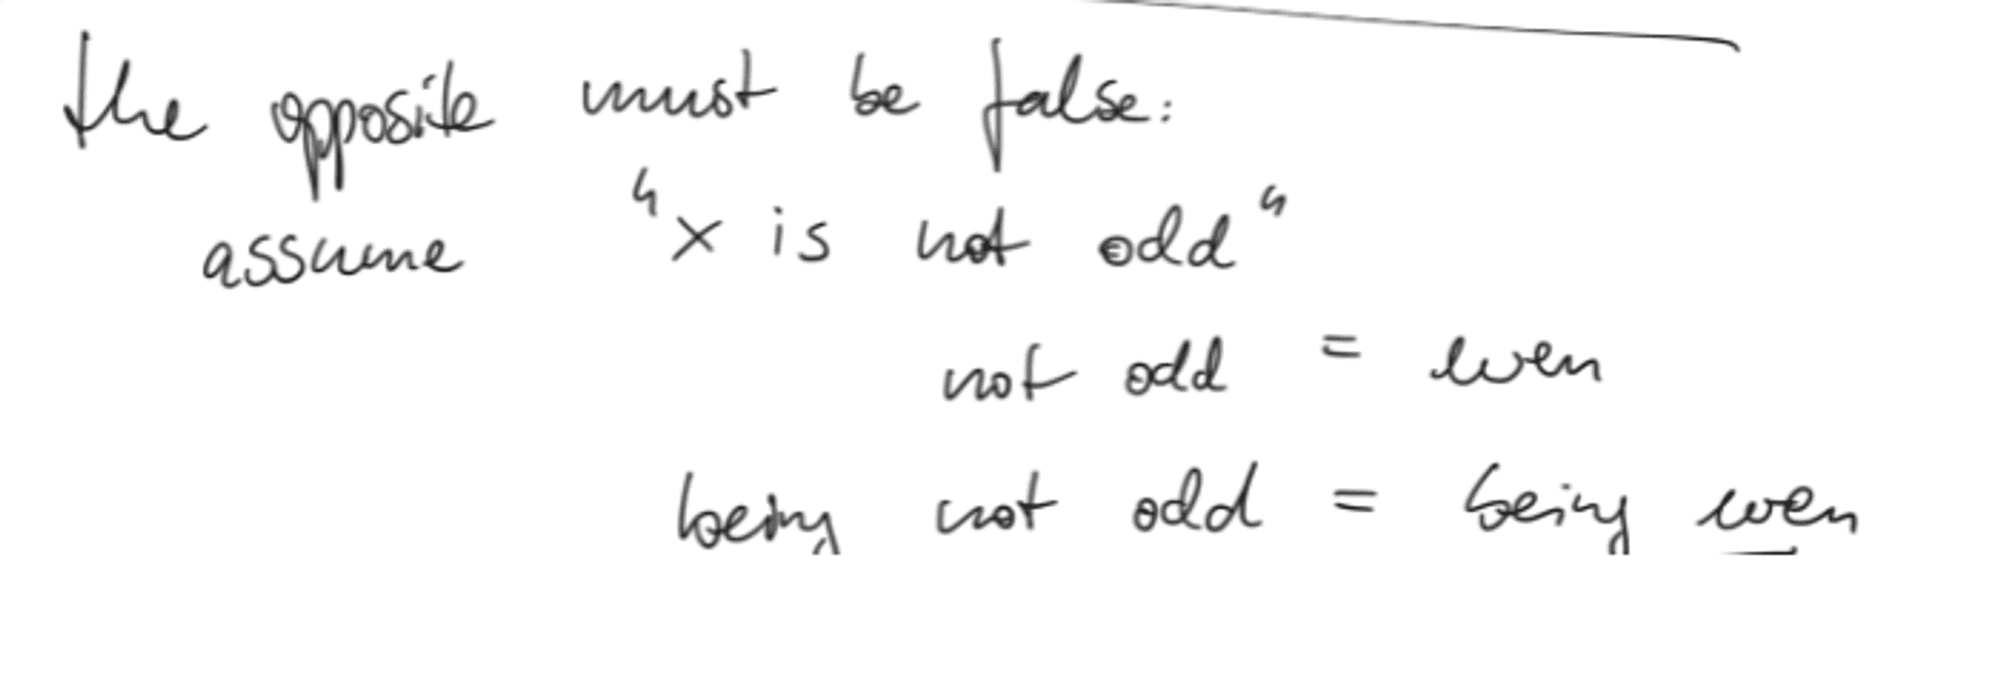 the opposite must be false:
assume "x is not odd"
not odd = even
being not odd = being even